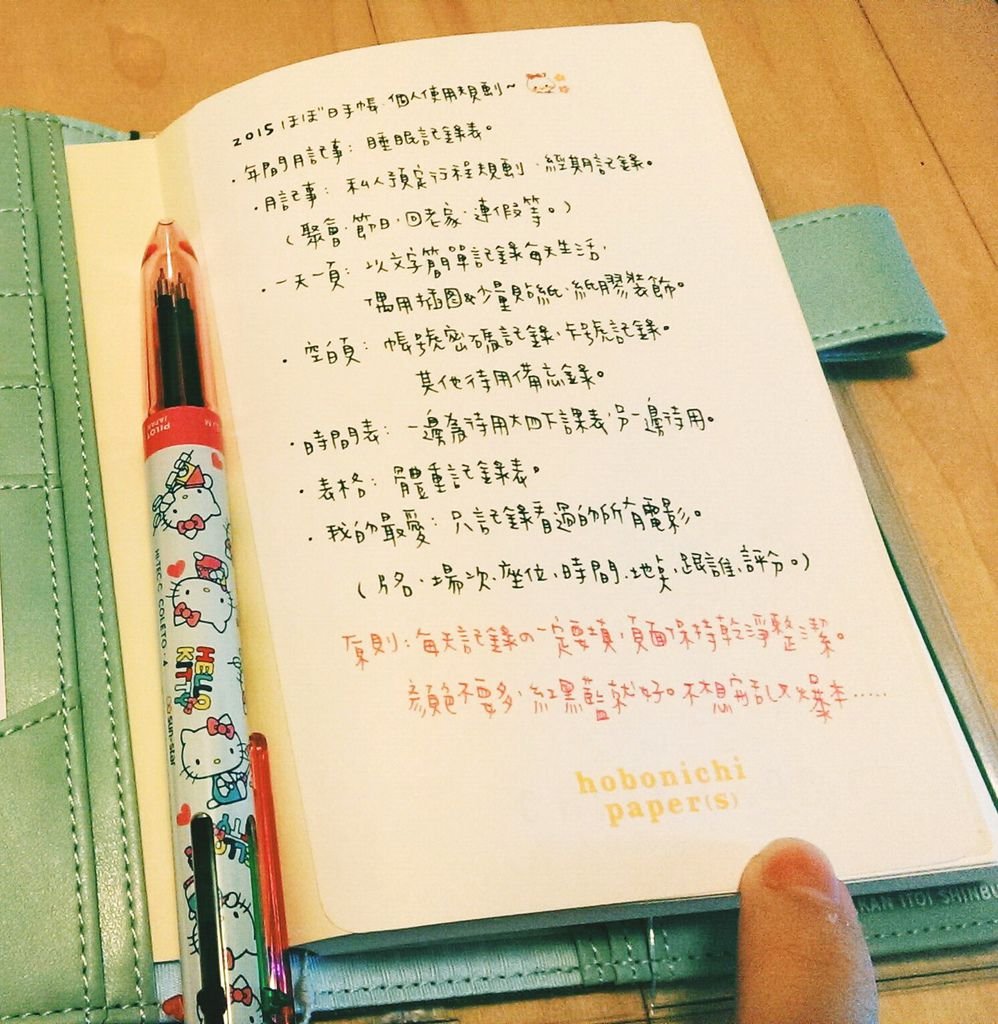 2015 ほぼ日手帳 個人使用規劃~
・年間月記事: 睡眠記錄表。
・月記事: 私人預定行程規劃、經期記錄。
(聚會、節日、回老家、連假等。)
・一天一頁: 以文字簡單記錄每天生活,
偶用插圖&少量貼紙、紙膠裝飾。
・空白頁: 帳號密碼記錄、卡號記錄。
其他待用備忘錄。
・時間表: 一邊為待用大四下課表,另一邊待用。
・表格: 體重記錄表。
・我的最愛: 只記錄看過的所有電影。
(片名、場次、座位、時間、地點、跟誰、評分。)
原則: 每天記錄の一定要填,頁面保持乾淨整潔。
顏色不要多,紅黑藍就好。不想寫試又爆本.....
hobonichi
paper(s)
PILOT
JAPAN
HI-TEC-C COLETO:4
HELLO
KITTY
sun-star
KAN ITOI SHINBU